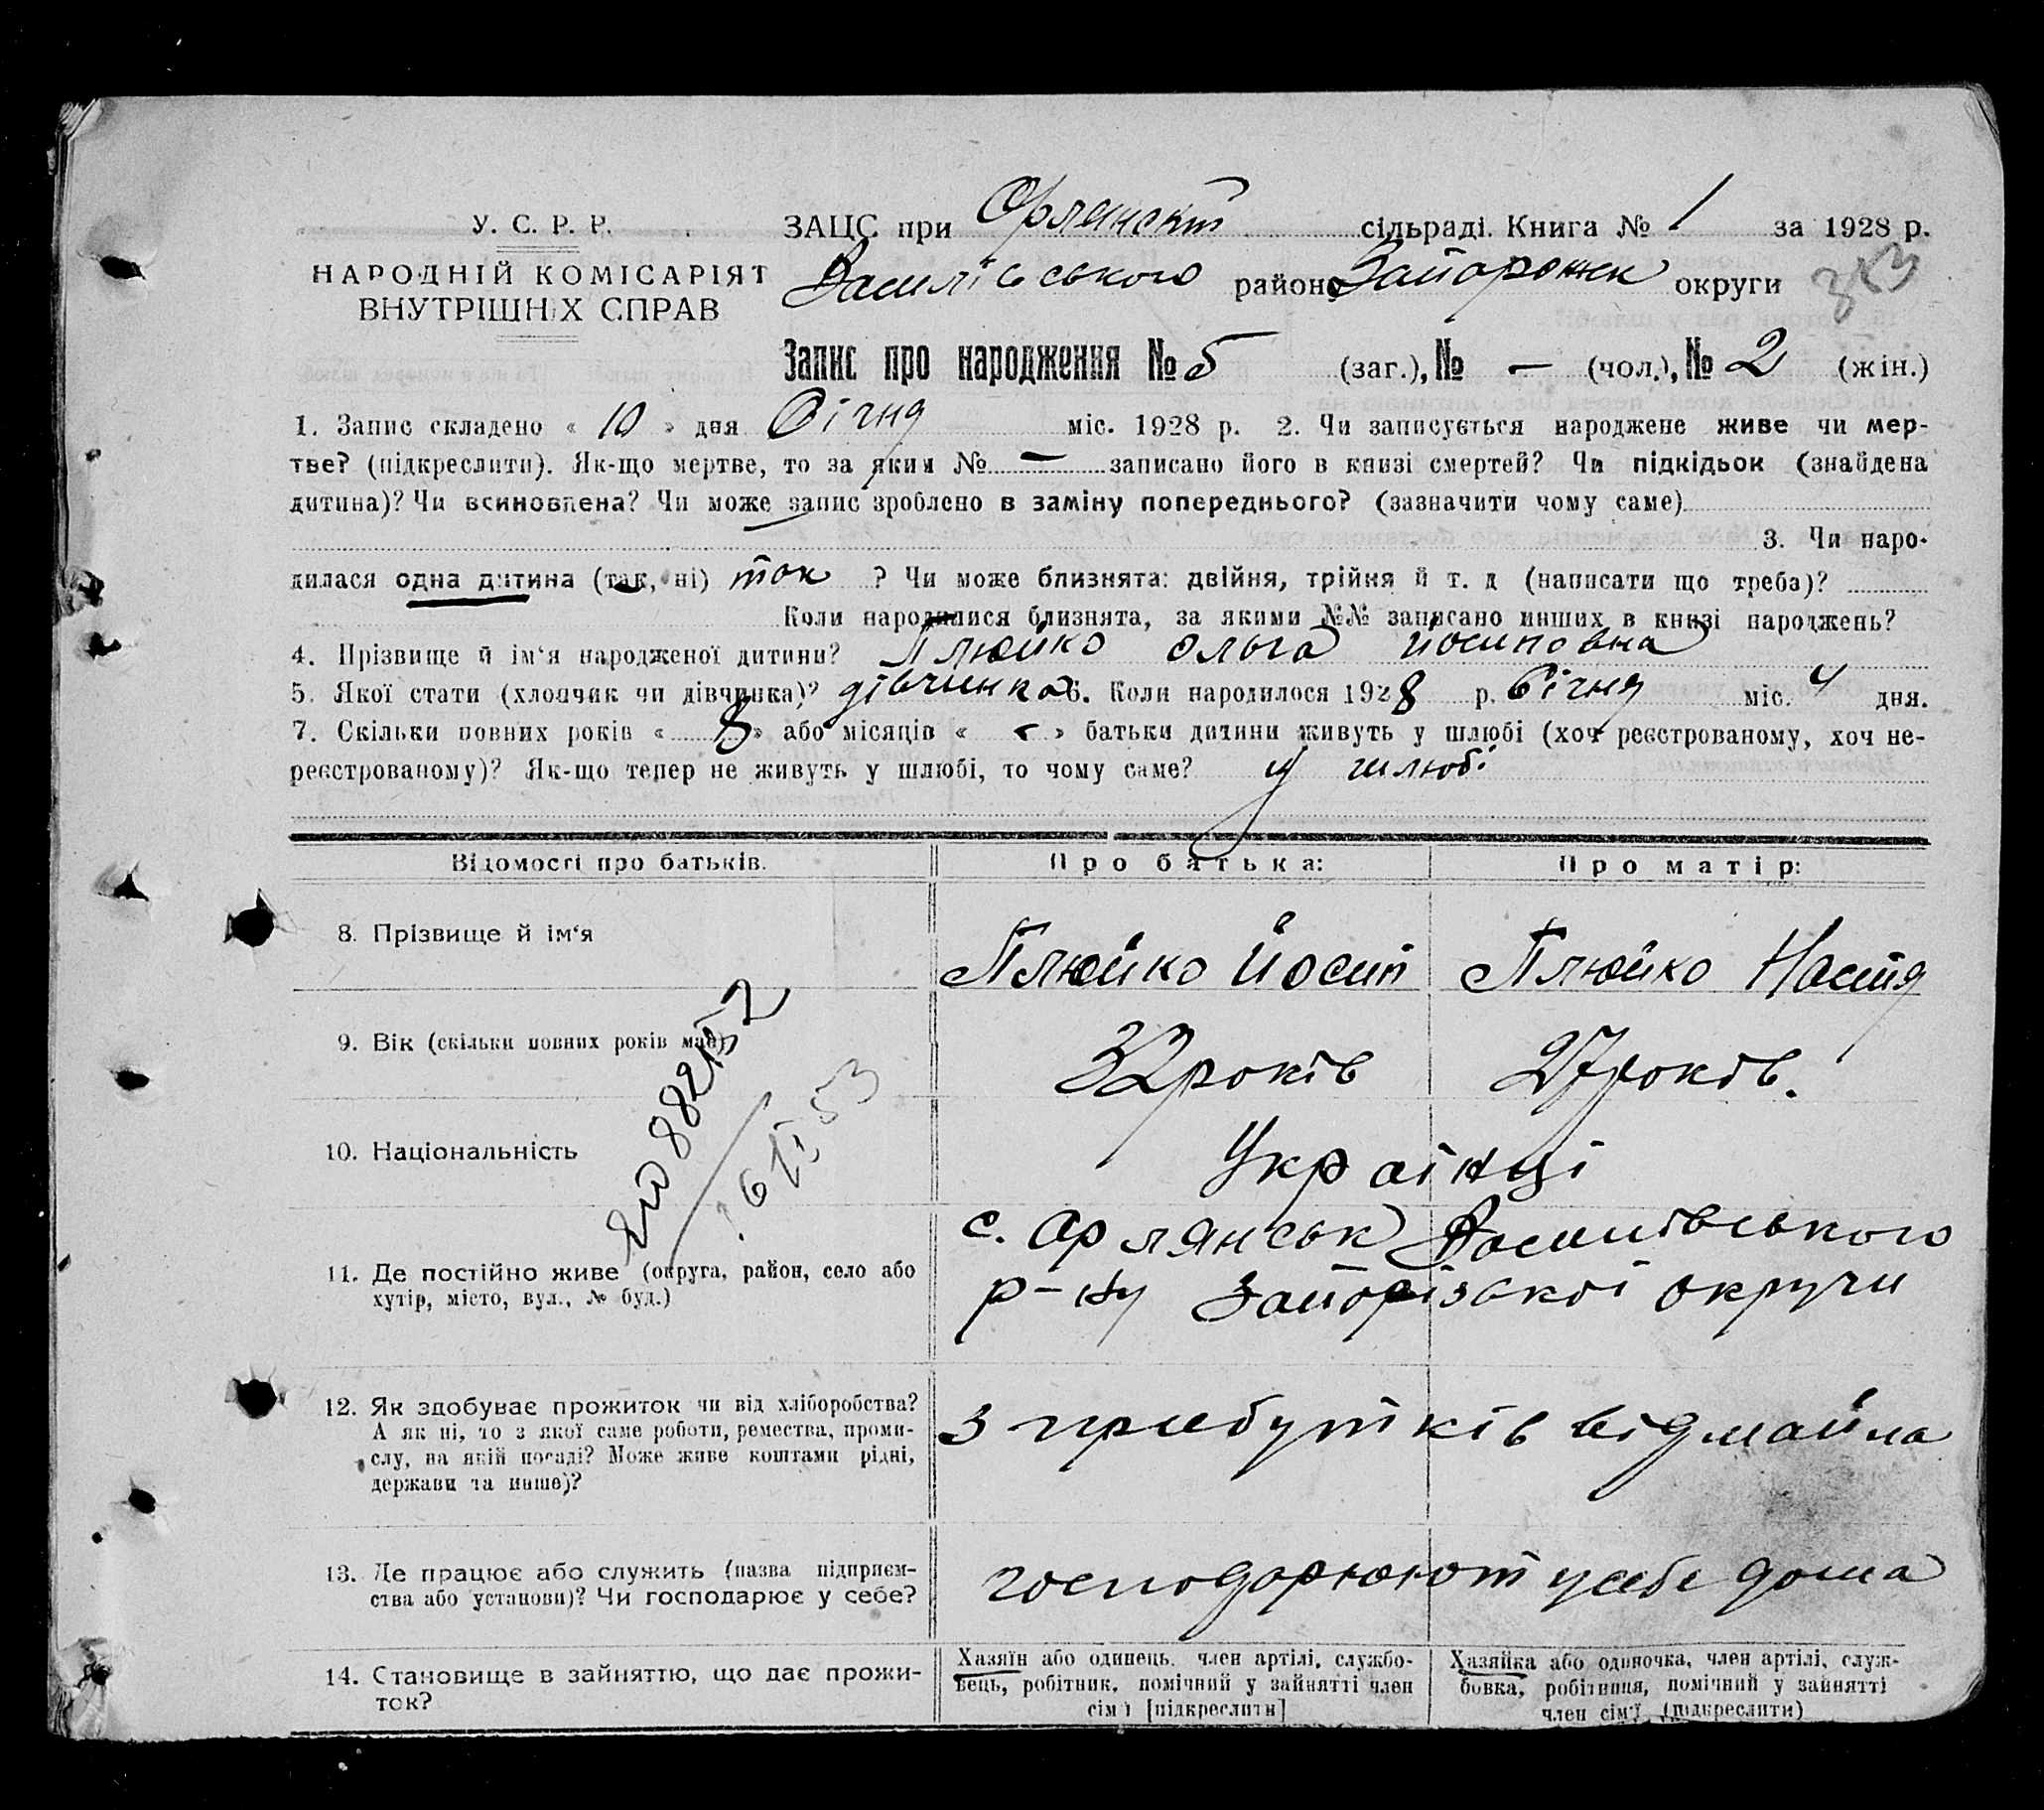 У. С. Р. Р.
НАРОДНІЙ КОМІСАРІЯТ
ВНУТРІШНІХ СПРАВ
ЗАЦС при Орлянскій сільраді. Книга № 1 за 1928 р.
Василівського району Запорожск округи
Запис про народження № 5 (заг.), № — (чол.), № 2 (жін.)
1. Запис складено « 10 » дня Січня міс. 1928 р. 2. Чи записується народжене живе чи мер-
тве? (підкреслити). Як-що мертве, то за яким № — записано його в книзі смертей? Чи підкідьок (знайдена
дитина)? Чи всиновлена? Чи може запис зроблено в заміну попереднього? (зазначити чому саме)
3. Чи наро-
дилася одна дитина (так, ні) так ? Чи може близнята: двійня, трійня й т. д (написати що треба)?
Коли народилися близнята, за якими №№ записано инших в книзі народжень?
4. Прізвище й ім'я народженої дитини? Плюйко Ольга Йосиповна
5. Якої стати (хлопчик чи дівчинка)? дівчинка 6. Коли народилося 1928 р. Січня міс. 4 дня.
7. Скільки повних років « 8 » або місяців « - » батьки дитини живуть у шлюбі (хоч реєстрованому, хоч не-
реєстрованому)? Як-що тепер не живуть у шлюбі, то чому саме? у шлюбі
Відомості про батьків. Про батька: Про матір:
8. Прізвище й ім'я Плюйко Йосип Плюйко Настя
9. Вік (скільки повних років має) 32 років 27 років.
10. Національність Українці
11. Де постійно живе (округа, район, село або
хутір, місто, вул., № буд.)
с. Орлянськ Василівського
р-ну Запорізської округи
12. Як здобуває прожиток чи від хліборобства?
А як ні, то з якої саме роботи, ремества, проми-
слу, на якій посаді? Може живе коштами рідні,
держави та инше)?
з прибутків від майна
13. Де працює або служить (назва підприєм-
ства або установи)? Чи господарює у себе?
господарюют у себе дома
14. Становище в зайняттю, що дає прожи-
ток?
Хазяїн або одинець, член артілі, службо-
вець, робітник, помічний у зайнятті член
сім'ї [підкреслити]
Хазяйка або одиночка, член артілі, служ-
бовка, робітниця, помічний у зайнятті
член сім'ї (підкреслити)